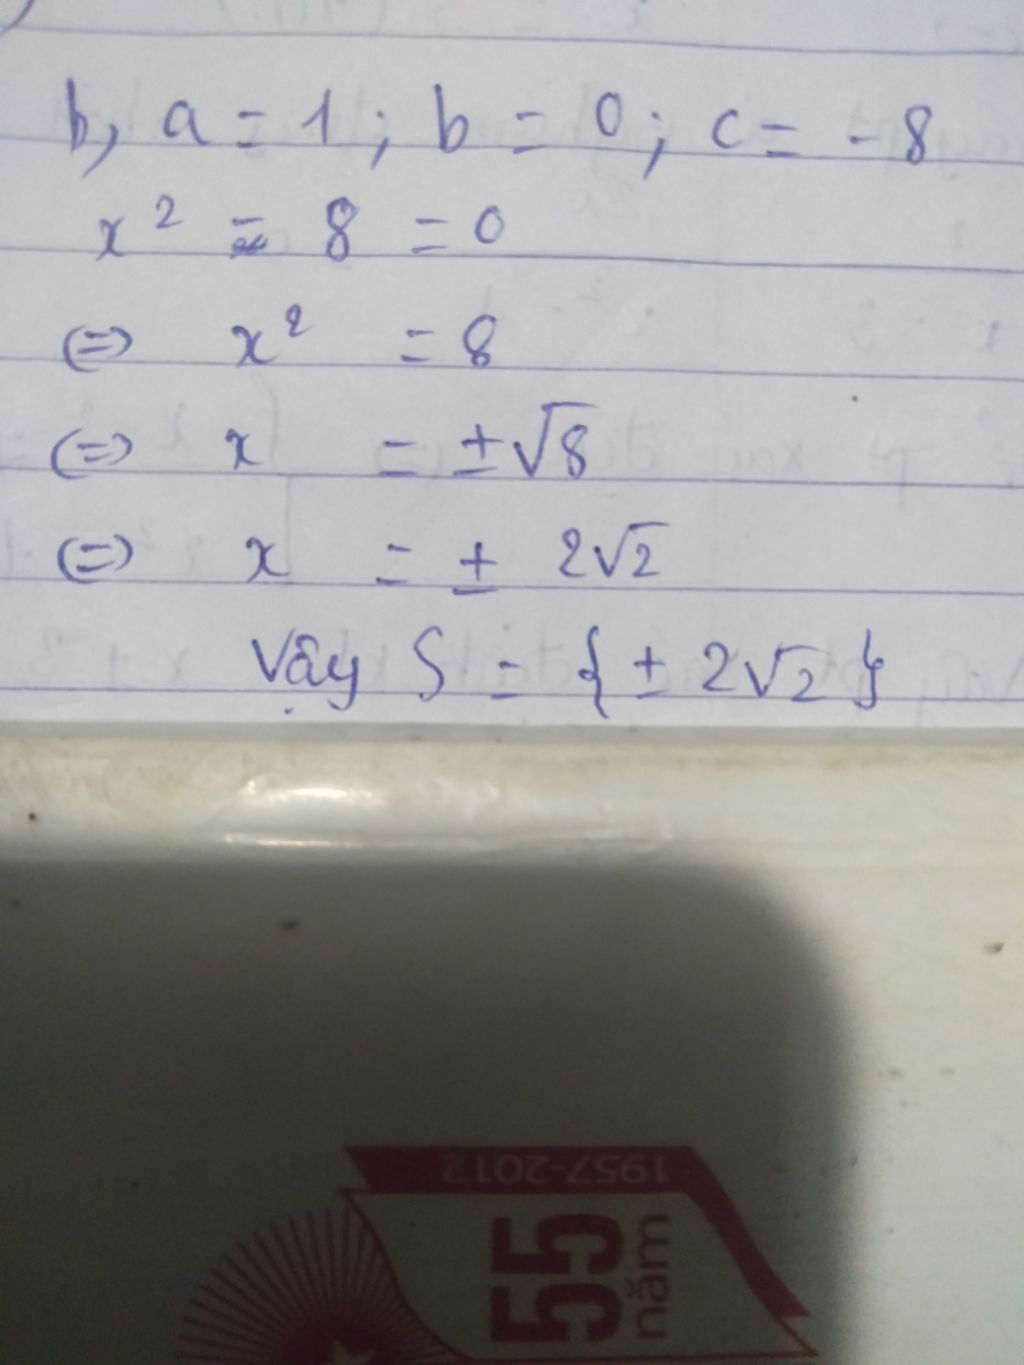 b, a = 1 ; b = 0 ; c = - 8
x² - 8 = 0
(=) x² = 8
(=) x = ±√8
(=) x = ± 2√2
Vậy S = { ± 2√2 }
1957-2012
55
năm